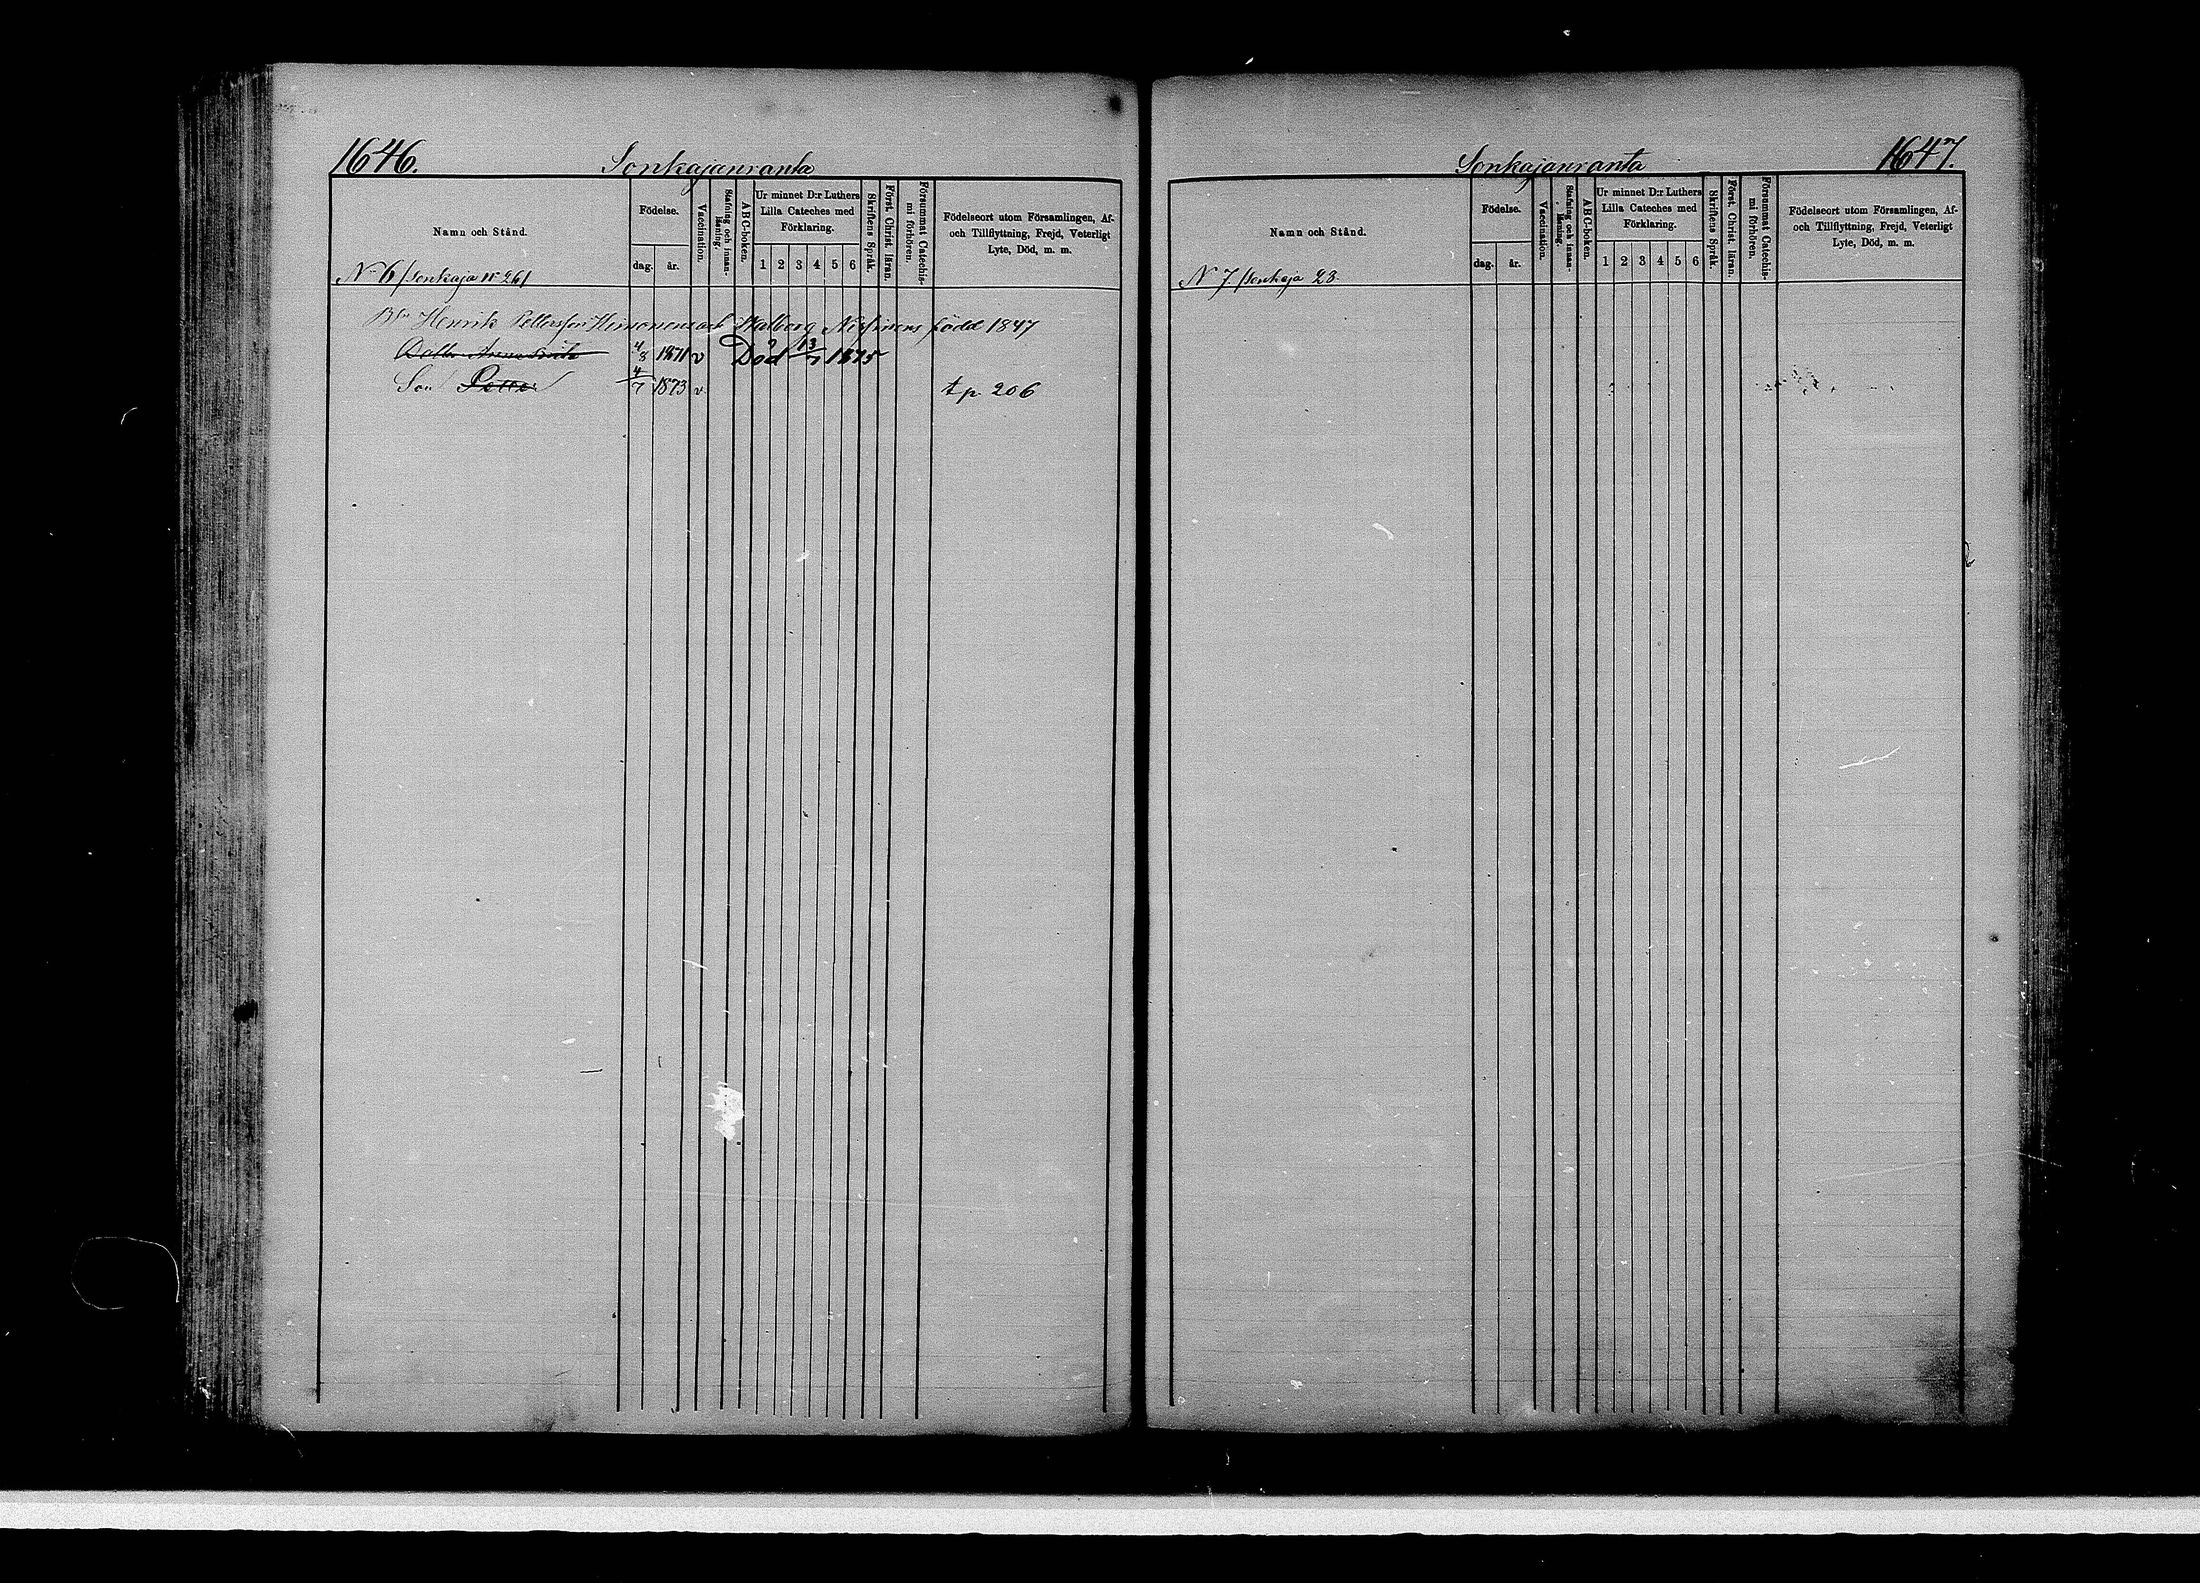 1646. Sonkajanranta
Namn och Stånd. Födelse. dag. år. Vaccination. Stafning och innanläsning. ABC-boken. Ur minnet D:r Luthers Lilla Cateches med Förklaring. 1 2 3 4 5 6 Skriftens Språk. Först. Christ. läran. Försummat Catechismi förhören. Födelseort utom Församlingen, Af- och Tillflyttning, Frejd, Veterligt Lyte, Död, m. m.
N 6 /Sonkaja N 26/
Henrik Pettersson Hirvonen och Walborg född 1847
Dottr Anna 4/8 1871 v Död 13/7 1875
Son Petter 4/7 1873 v. t p. 206
Sonkajanranta 1647.
Namn och Stånd. Födelse. dag. år. Vaccination. Stafning och innanläsning. ABC-boken. Ur minnet D:r Luthers Lilla Cateches med Förklaring. 1 2 3 4 5 6 Skriftens Språk. Först. Christ. läran. Försummat Catechismi förhören. Födelseort utom Församlingen, Af- och Tillflyttning, Frejd, Veterligt Lyte, Död, m. m.
N 7. /Sonkaja 23.